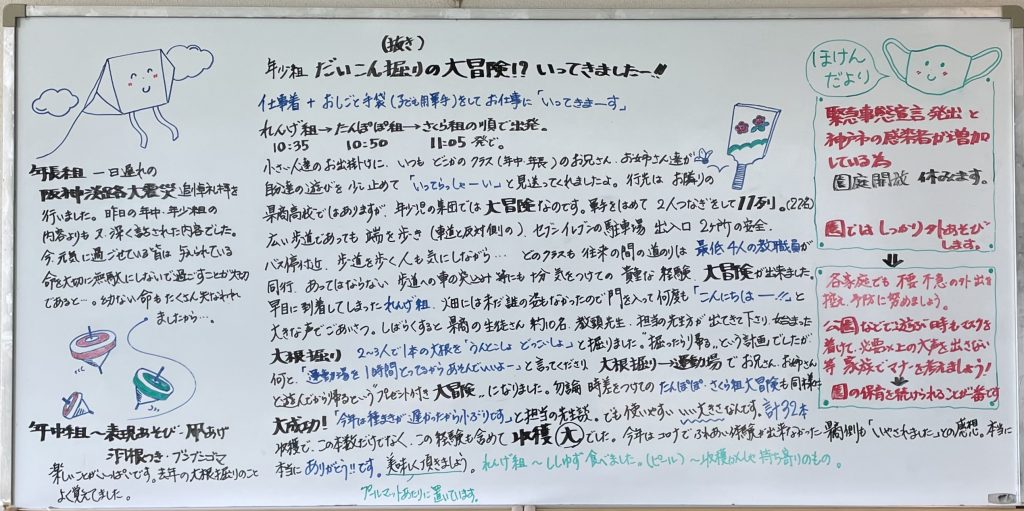 年長組 一日遅れの
阪神淡路大震災 追悼礼拝を
行いました。昨日の年中・年少組の
内容よりも又、深く話された内容でした。
今、元気に過ごせている皆は 与えられている
命を大切に無駄にしないで過ごすことが大切
であると…。幼ない命もたくさん失なわれ
ましたから…。
年中組~表現あそび・凧あげ
羽根つき・ブンブンゴマ
楽しいことがいっぱいです。去年の大根掘りのこと
よく覚えてました。
(抜き)
年少組 だいこん掘りの大冒険!? いってきましたー!!
仕事着 + おしごと手袋(子ども用軍手)をして お仕事に「いってきまーす」
れんげ組→たんぽぽ組→さくら組の順で出発。
10:35 10:50 11:05発で。
小さい人達のお出掛けに、いつも どこかのクラス(年中・年長)のお兄さん、お姉さん達が
自分達の遊びを少し止めて「いってらっしゃーい」と見送ってくれましたよ。行先は お隣りの
県商高校ではありますが、年少児の集団では大冒険なのです。軍手をはめて 2人つなぎをして11列。(22名)
広い歩道であっても 端を歩き(車道と反対側の)、セブンイレブンの駐車場 出入口 2ヶ所の安全、
バス停付近、歩道を歩く人も気にしながら… どのクラスも 往来の間の道のりは 最低4人の教職員が
同行、あってはならない 歩道への車の突込み等にも十分気をつけての 貴重な経験、大冒険が出来ました。
早目に到着してしまった れんげ組、畑には未だ誰の姿もなかったので門を入って何度も「こんにちはー!!」と
大きな声でごあいさつ。しばらくすると 県商の生徒さん 約10名、教頭先生、担当の先生方が出てきて下さり、始まった
大根掘り 2~3人で1本の大根を「うんとこしょ どっこいしょ」と掘りました。“掘ったら帰る”という計画でしたが、
何と、「運動場を1時間とってるからあそんでいいよー」と言ってくださり、大根掘り→運動場で お兄さん、お姉さん
と遊んでから帰るというプレゼント付き 大冒険…になりました。勿論 時差をつけての たんぽぽ・さくら組大冒険も同様に
大成功!「今年は種まきが遅かったから小ぶりです」と担当の先生談。でも使いやすい いい大きさなんです。計32本
収穫で、この本数だけでなく、この経験も含めて 収穫(大)でした。今年はコロナでふれあい体験が出来なかった県商側も「いやされました」との感想。本当に
本当に ありがとう!!です。美味しく頂きましょう。れんげ組~ししゅず食べました。(ピール)~収穫かんしゃ 持ち寄りのもの。
アールマットあたりに置いています。
ほけん
だより
緊急事態宣言 発出 と
神戸の感染者が増加
している為
園庭開放 休みます。
園では しっかり外あそび
します。
各家庭でも 不要不急の外出を
控え、予防に努めましょう。
公園などで遊ぶ時もマスクを
着けて、必要以上の大声を出さない
等 家族でマナーを考えましょう!
園の保育を続けられることが一番です